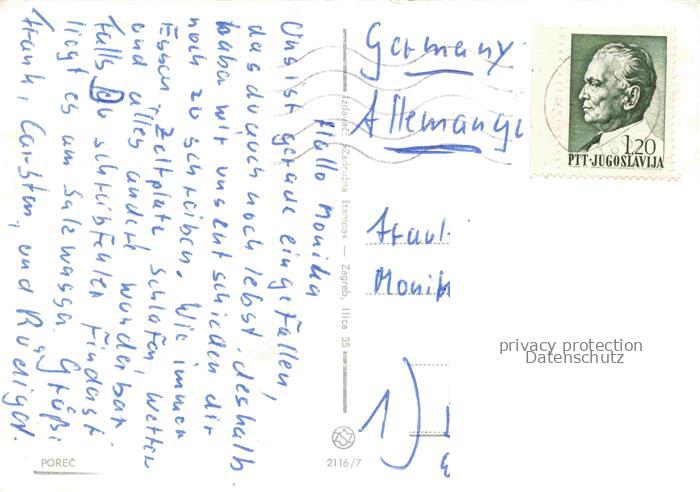 Hallo Monika
Uns ist gerade eingefallen,
das du auch noch lebst. deshalb
haba wir uns entschieden dir
noch zu schreiben. Wie immer
Essen, Zeltplatz schlafen, Wetter
und alles andere wunderbar
Falls Du schreibfehler findest
liegt es am Salzwasser. Grüße
Frank, Carsten, und Ruediger.
Izdavač: »Zadružna štampa« — Zagreb, Ilica 35
POREČ
2116/7
Germany
Allemangi
Fraul
Monik
1)
1.20
PTT·JUGOSLAVIJA
privacy protection
Datenschutz